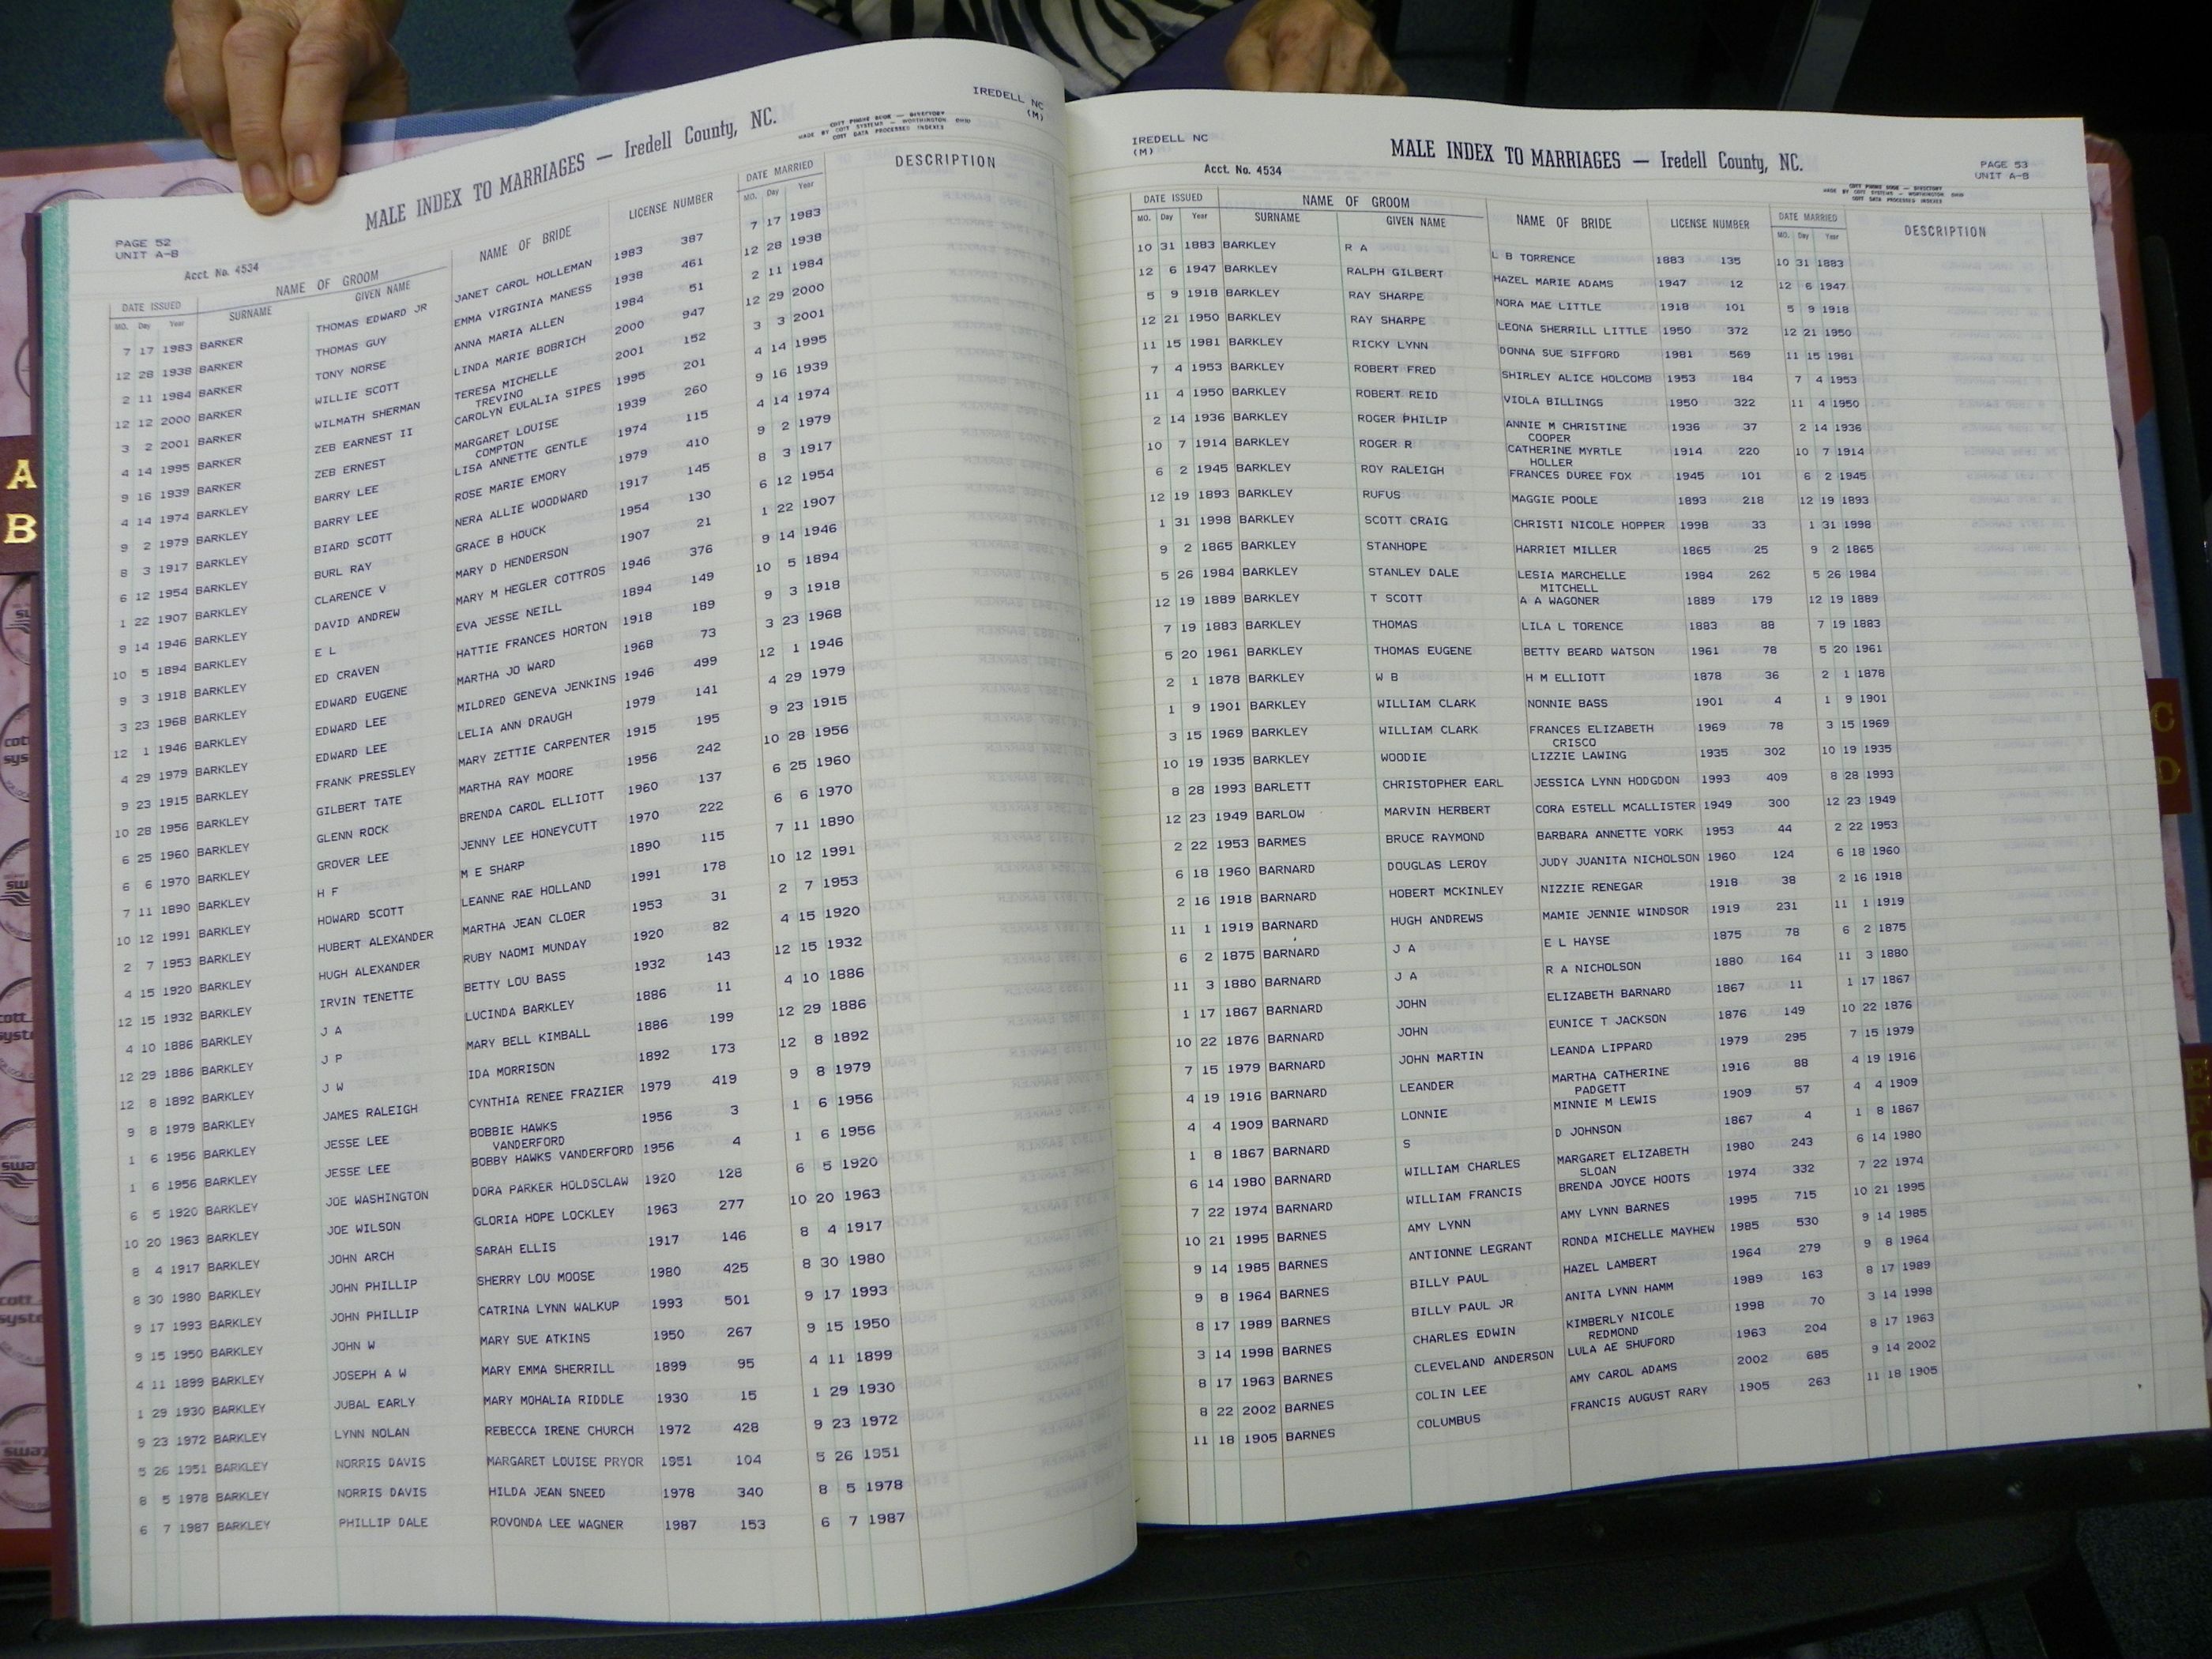 IREDELL NC
(M)
MALE INDEX TO MARRIAGES — Iredell County, NC.
COTT PHONIX BOOK — DIRECTORY
MADE BY COTT SYSTEMS — WORTHINGTON OHIO
COTT DATA PROCESSED INDEXES
PAGE 52
UNIT A-B
Acct. No. 4534
DATE ISSUED NAME OF GROOM NAME OF BRIDE LICENSE NUMBER DATE MARRIED DESCRIPTION
MO. Day Year SURNAME GIVEN NAME MO. Day Year
7 17 1983 BARKER THOMAS EDWARD JR JANET CAROL HOLLEMAN 1983 387 7 17 1983
12 28 1938 BARKER THOMAS GUY EMMA VIRGINIA MANESS 1938 461 12 28 1938
2 11 1984 BARKER TONY NORSE ANNA MARIA ALLEN 1984 51 2 11 1984
12 12 2000 BARKER WILLIE SCOTT LINDA MARIE BOBRICH 2000 947 12 29 2000
3 2 2001 BARKER WILMATH SHERMAN TERESA MICHELLE 2001 152 3 3 2001
TREVINO
4 14 1995 BARKER ZEB EARNEST II CAROLYN EULALIA SIPES 1995 201 4 14 1995
9 16 1939 BARKER ZEB ERNEST MARGARET LOUISE 1939 260 9 16 1939
COMPTON
4 14 1974 BARKLEY BARRY LEE LISA ANNETTE GENTLE 1974 115 4 14 1974
9 2 1979 BARKLEY BARRY LEE ROSE MARIE EMORY 1979 410 9 2 1979
8 3 1917 BARKLEY BIARD SCOTT NERA ALLIE WOODWARD 1917 145 8 3 1917
6 12 1954 BARKLEY BURL RAY GRACE B HOUCK 1954 130 6 12 1954
1 22 1907 BARKLEY CLARENCE V MARY D HENDERSON 1907 21 1 22 1907
9 14 1946 BARKLEY DAVID ANDREW MARY M HEGLER COTTROS 1946 376 9 14 1946
10 5 1894 BARKLEY E L EVA JESSE NEILL 1894 149 10 5 1894
9 3 1918 BARKLEY ED CRAVEN HATTIE FRANCES HORTON 1918 189 9 3 1918
3 23 1968 BARKLEY EDWARD EUGENE MARTHA JO WARD 1968 73 3 23 1968
12 1 1946 BARKLEY EDWARD LEE MILDRED GENEVA JENKINS 1946 499 12 1 1946
4 29 1979 BARKLEY EDWARD LEE LELIA ANN DRAUGH 1979 141 4 29 1979
9 23 1915 BARKLEY FRANK PRESSLEY MARY ZETTIE CARPENTER 1915 195 9 23 1915
10 28 1956 BARKLEY GILBERT TATE MARTHA RAY MOORE 1956 242 10 28 1956
6 25 1960 BARKLEY GLENN ROCK BRENDA CAROL ELLIOTT 1960 137 6 25 1960
6 6 1970 BARKLEY GROVER LEE JENNY LEE HONEYCUTT 1970 222 6 6 1970
7 11 1890 BARKLEY H F M E SHARP 1890 115 7 11 1890
10 12 1991 BARKLEY HOWARD SCOTT LEANNE RAE HOLLAND 1991 178 10 12 1991
2 7 1953 BARKLEY HUBERT ALEXANDER MARTHA JEAN CLOER 1953 31 2 7 1953
4 15 1920 BARKLEY HUGH ALEXANDER RUBY NAOMI MUNDAY 1920 82 4 15 1920
12 15 1932 BARKLEY IRVIN TENETTE BETTY LOU BASS 1932 143 12 15 1932
4 10 1886 BARKLEY J A LUCINDA BARKLEY 1886 11 4 10 1886
12 29 1886 BARKLEY J P MARY BELL KIMBALL 1886 199 12 29 1886
12 8 1892 BARKLEY J W IDA MORRISON 1892 173 12 8 1892
9 8 1979 BARKLEY JAMES RALEIGH CYNTHIA RENEE FRAZIER 1979 419 9 8 1979
1 6 1956 BARKLEY JESSE LEE BOBBIE HAWKS 1956 3 1 6 1956
VANDERFORD
1 6 1956 BARKLEY JESSE LEE BOBBY HAWKS VANDERFORD 1956 4 1 6 1956
6 5 1920 BARKLEY JOE WASHINGTON DORA PARKER HOLDSCLAW 1920 128 6 5 1920
10 20 1963 BARKLEY JOE WILSON GLORIA HOPE LOCKLEY 1963 277 10 20 1963
8 4 1917 BARKLEY JOHN ARCH SARAH ELLIS 1917 146 8 4 1917
8 30 1980 BARKLEY JOHN PHILLIP SHERRY LOU MOOSE 1980 425 8 30 1980
9 17 1993 BARKLEY JOHN PHILLIP CATRINA LYNN WALKUP 1993 501 9 17 1993
9 15 1950 BARKLEY JOHN W MARY SUE ATKINS 1950 267 9 15 1950
4 11 1899 BARKLEY JOSEPH A W MARY EMMA SHERRILL 1899 95 4 11 1899
1 29 1930 BARKLEY JUBAL EARLY MARY MOHALIA RIDDLE 1930 15 1 29 1930
9 23 1972 BARKLEY LYNN NOLAN REBECCA IRENE CHURCH 1972 428 9 23 1972
5 26 1951 BARKLEY NORRIS DAVIS MARGARET LOUISE PRYOR 1951 104 5 26 1951
8 5 1978 BARKLEY NORRIS DAVIS HILDA JEAN SNEED 1978 340 8 5 1978
6 7 1987 BARKLEY PHILLIP DALE ROVONDA LEE WAGNER 1987 153 6 7 1987
IREDELL NC
(M)
MALE INDEX TO MARRIAGES — Iredell County, NC.
PAGE 53
UNIT A-B
Acct. No. 4534
COTT PHONIX BOOK — DIRECTORY
MADE BY COTT SYSTEMS — WORTHINGTON OHIO
COTT DATA PROCESSED INDEXES
DATE ISSUED NAME OF GROOM NAME OF BRIDE LICENSE NUMBER DATE MARRIED DESCRIPTION
MO. Day Year SURNAME GIVEN NAME MO. Day Year
10 31 1883 BARKLEY R A L B TORRENCE 1883 135 10 31 1883
12 6 1947 BARKLEY RALPH GILBERT HAZEL MARIE ADAMS 1947 12 12 6 1947
5 9 1918 BARKLEY RAY SHARPE NORA MAE LITTLE 1918 101 5 9 1918
12 21 1950 BARKLEY RAY SHARPE LEONA SHERRILL LITTLE 1950 372 12 21 1950
11 15 1981 BARKLEY RICKY LYNN DONNA SUE SIFFORD 1981 569 11 15 1981
7 4 1953 BARKLEY ROBERT FRED SHIRLEY ALICE HOLCOMB 1953 184 7 4 1953
11 4 1950 BARKLEY ROBERT REID VIOLA BILLINGS 1950 322 11 4 1950
2 14 1936 BARKLEY ROGER PHILIP ANNIE M CHRISTINE 1936 37 2 14 1936
COOPER
10 7 1914 BARKLEY ROGER R CATHERINE MYRTLE 1914 220 10 7 1914
HOLLER
6 2 1945 BARKLEY ROY RALEIGH FRANCES DUREE FOX 1945 101 6 2 1945
12 19 1893 BARKLEY RUFUS MAGGIE POOLE 1893 218 12 19 1893
1 31 1998 BARKLEY SCOTT CRAIG CHRISTI NICOLE HOPPER 1998 33 1 31 1998
9 2 1865 BARKLEY STANHOPE HARRIET MILLER 1865 25 9 2 1865
5 26 1984 BARKLEY STANLEY DALE LESIA MARCHELLE 1984 262 5 26 1984
MITCHELL
12 19 1889 BARKLEY T SCOTT A A WAGONER 1889 179 12 19 1889
7 19 1883 BARKLEY THOMAS LILA L TORENCE 1883 88 7 19 1883
5 20 1961 BARKLEY THOMAS EUGENE BETTY BEARD WATSON 1961 78 5 20 1961
2 1 1878 BARKLEY W B H M ELLIOTT 1878 36 2 1 1878
1 9 1901 BARKLEY WILLIAM CLARK NONNIE BASS 1901 4 1 9 1901
3 15 1969 BARKLEY WILLIAM CLARK FRANCES ELIZABETH 1969 78 3 15 1969
CRISCO
10 19 1935 BARKLEY WOODIE LIZZIE LAWING 1935 302 10 19 1935
8 28 1993 BARLETT CHRISTOPHER EARL JESSICA LYNN HODGDON 1993 409 8 28 1993
12 23 1949 BARLOW MARVIN HERBERT CORA ESTELL MCALLISTER 1949 300 12 23 1949
2 22 1953 BARMES BRUCE RAYMOND BARBARA ANNETTE YORK 1953 44 2 22 1953
6 18 1960 BARNARD DOUGLAS LEROY JUDY JUANITA NICHOLSON 1960 124 6 18 1960
2 16 1918 BARNARD HOBERT MCKINLEY NIZZIE RENEGAR 1918 38 2 16 1918
11 1 1919 BARNARD HUGH ANDREWS MAMIE JENNIE WINDSOR 1919 231 11 1 1919
6 2 1875 BARNARD J A E L HAYSE 1875 78 6 2 1875
11 3 1880 BARNARD J A R A NICHOLSON 1880 164 11 3 1880
1 17 1867 BARNARD JOHN ELIZABETH BARNARD 1867 11 1 17 1867
10 22 1876 BARNARD JOHN EUNICE T JACKSON 1876 149 10 22 1876
7 15 1979 BARNARD JOHN MARTIN LEANDA LIPPARD 1979 295 7 15 1979
4 19 1916 BARNARD LEANDER MARTHA CATHERINE 1916 88 4 19 1916
PADGETT
4 4 1909 BARNARD LONNIE MINNIE M LEWIS 1909 57 4 4 1909
1 8 1867 BARNARD S D JOHNSON 1867 4 1 8 1867
6 14 1980 BARNARD WILLIAM CHARLES MARGARET ELIZABETH 1980 243 6 14 1980
SLOAN
7 22 1974 BARNARD WILLIAM FRANCIS BRENDA JOYCE HOOTS 1974 332 7 22 1974
10 21 1995 BARNES AMY LYNN AMY LYNN BARNES 1995 715 10 21 1995
9 14 1985 BARNES ANTIONNE LEGRANT RONDA MICHELLE MAYHEW 1985 530 9 14 1985
9 8 1964 BARNES BILLY PAUL HAZEL LAMBERT 1964 279 9 8 1964
8 17 1989 BARNES BILLY PAUL JR ANITA LYNN HAMM 1989 163 8 17 1989
3 14 1998 BARNES CHARLES EDWIN KIMBERLY NICOLE 1998 70 3 14 1998
REDMOND
8 17 1963 BARNES CLEVELAND ANDERSON LULA AE SHUFORD 1963 204 8 17 1963
8 22 2002 BARNES COLIN LEE AMY CAROL ADAMS 2002 685 9 14 2002
11 18 1905 BARNES COLUMBUS FRANCIS AUGUST RARY 1905 263 11 18 1905
A
B
C
D